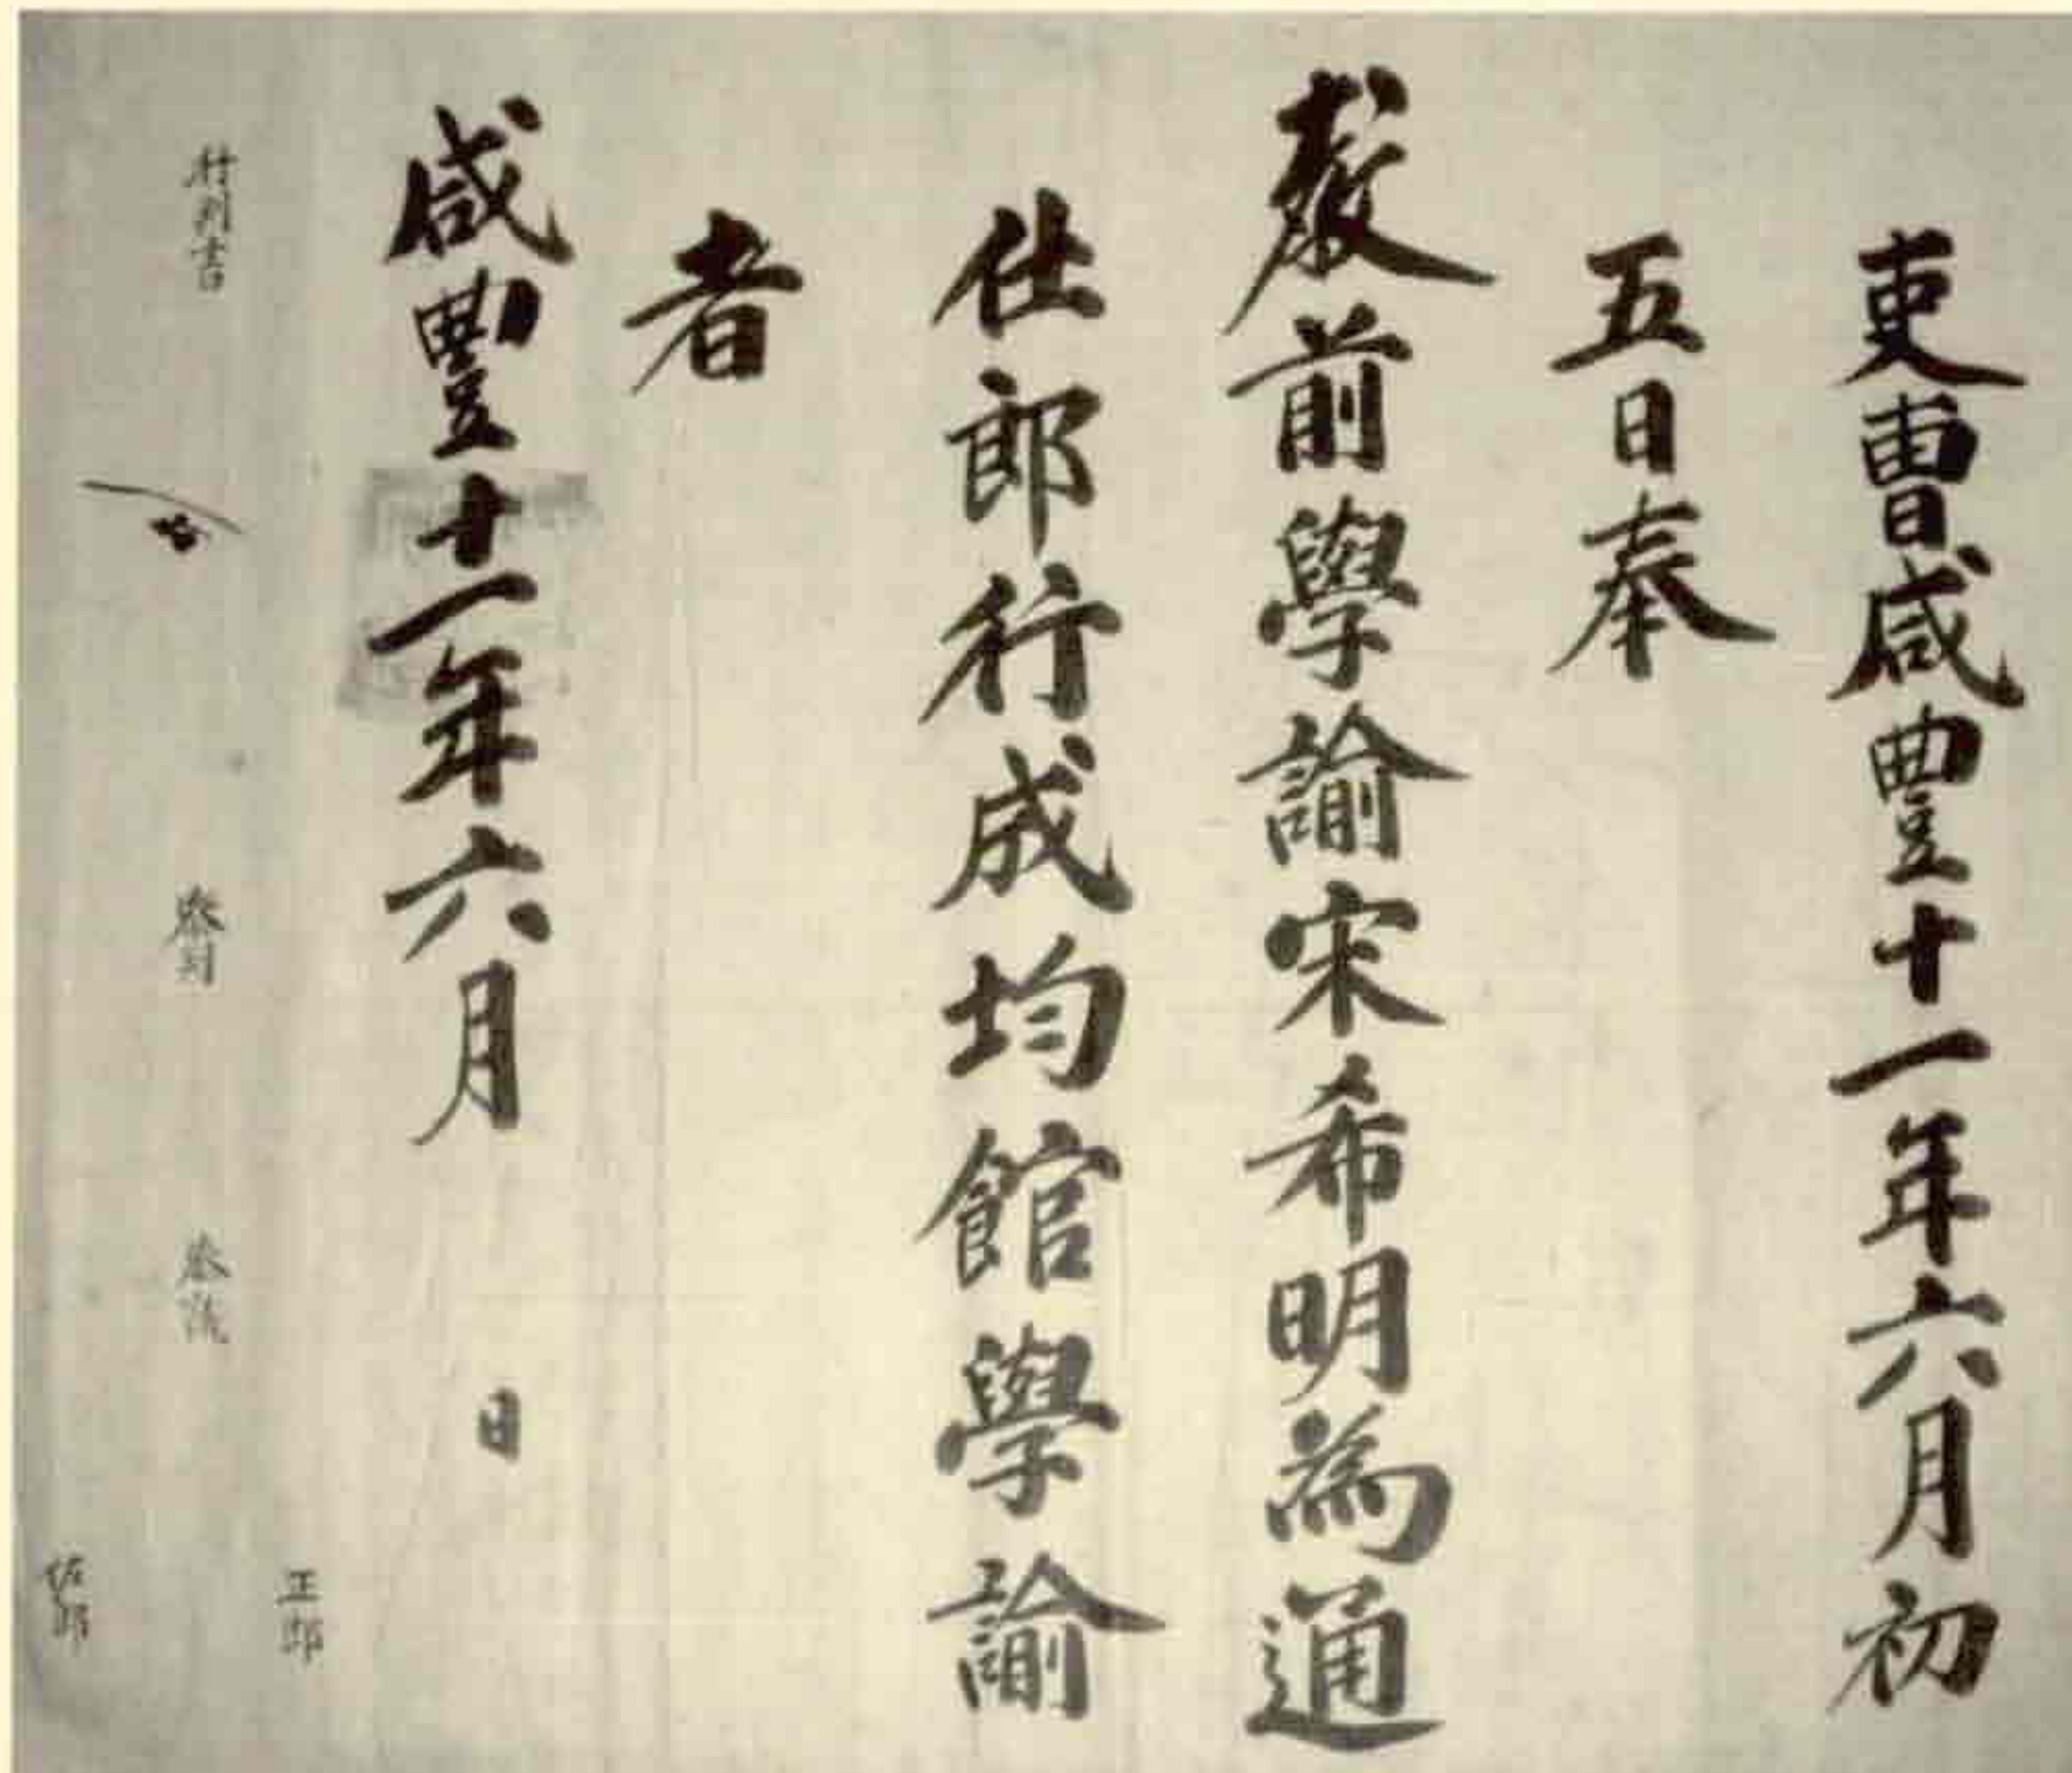 吏曹咸豐十一年六月初
五日奉
敎前學諭宋希明為通
仕郎行成均館學諭
者
咸豐十一年六月 日
行判書 參判 參議 正郎
佐郎